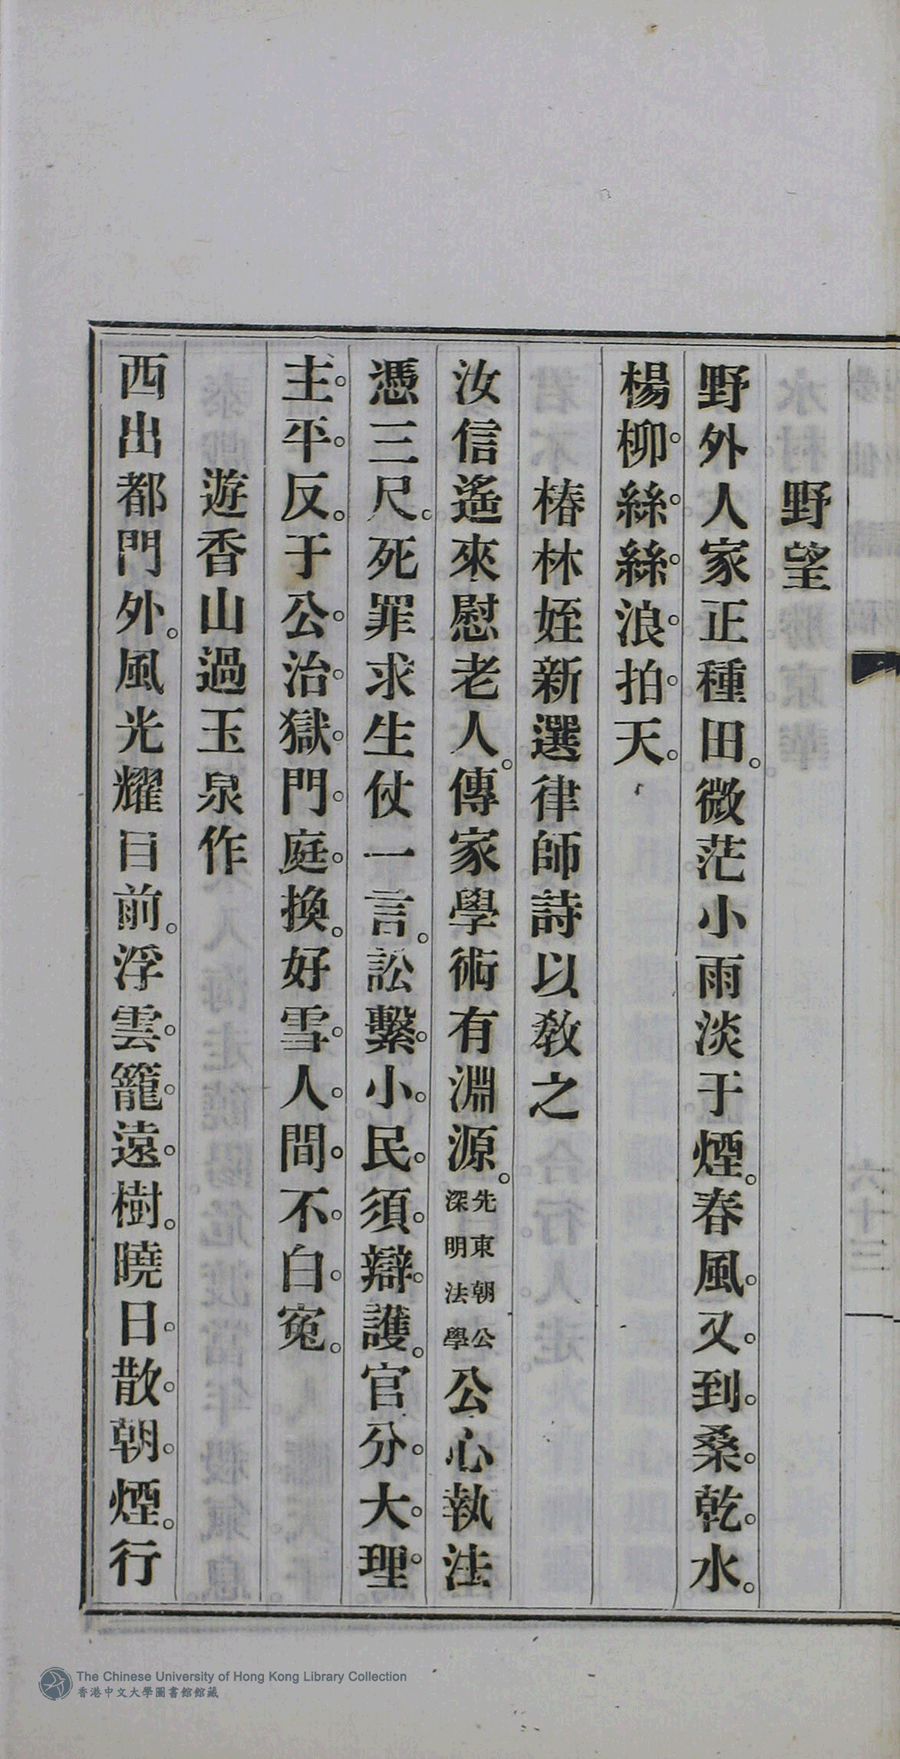 野望
野外人家正種田。微茫小雨淡于煙。春風又到桑乾水。
楊柳絲絲浪拍天。
椿林姪新選律師詩以教之
汝信遙來慰老人。傳家學術有淵源。先東朝公深明法學公心執法
憑三尺。死罪求生仗一言。訟繫小民須辯護。官分大理
主平反。于公治獄門庭換。好雪人間不白冤。
遊香山過玉泉作
西出都門外。風光耀目前。浮雲籠遠樹。曉日散朝煙。行
The Chinese University of Hong Kong Library Collection
香港中文大學圖書館館藏